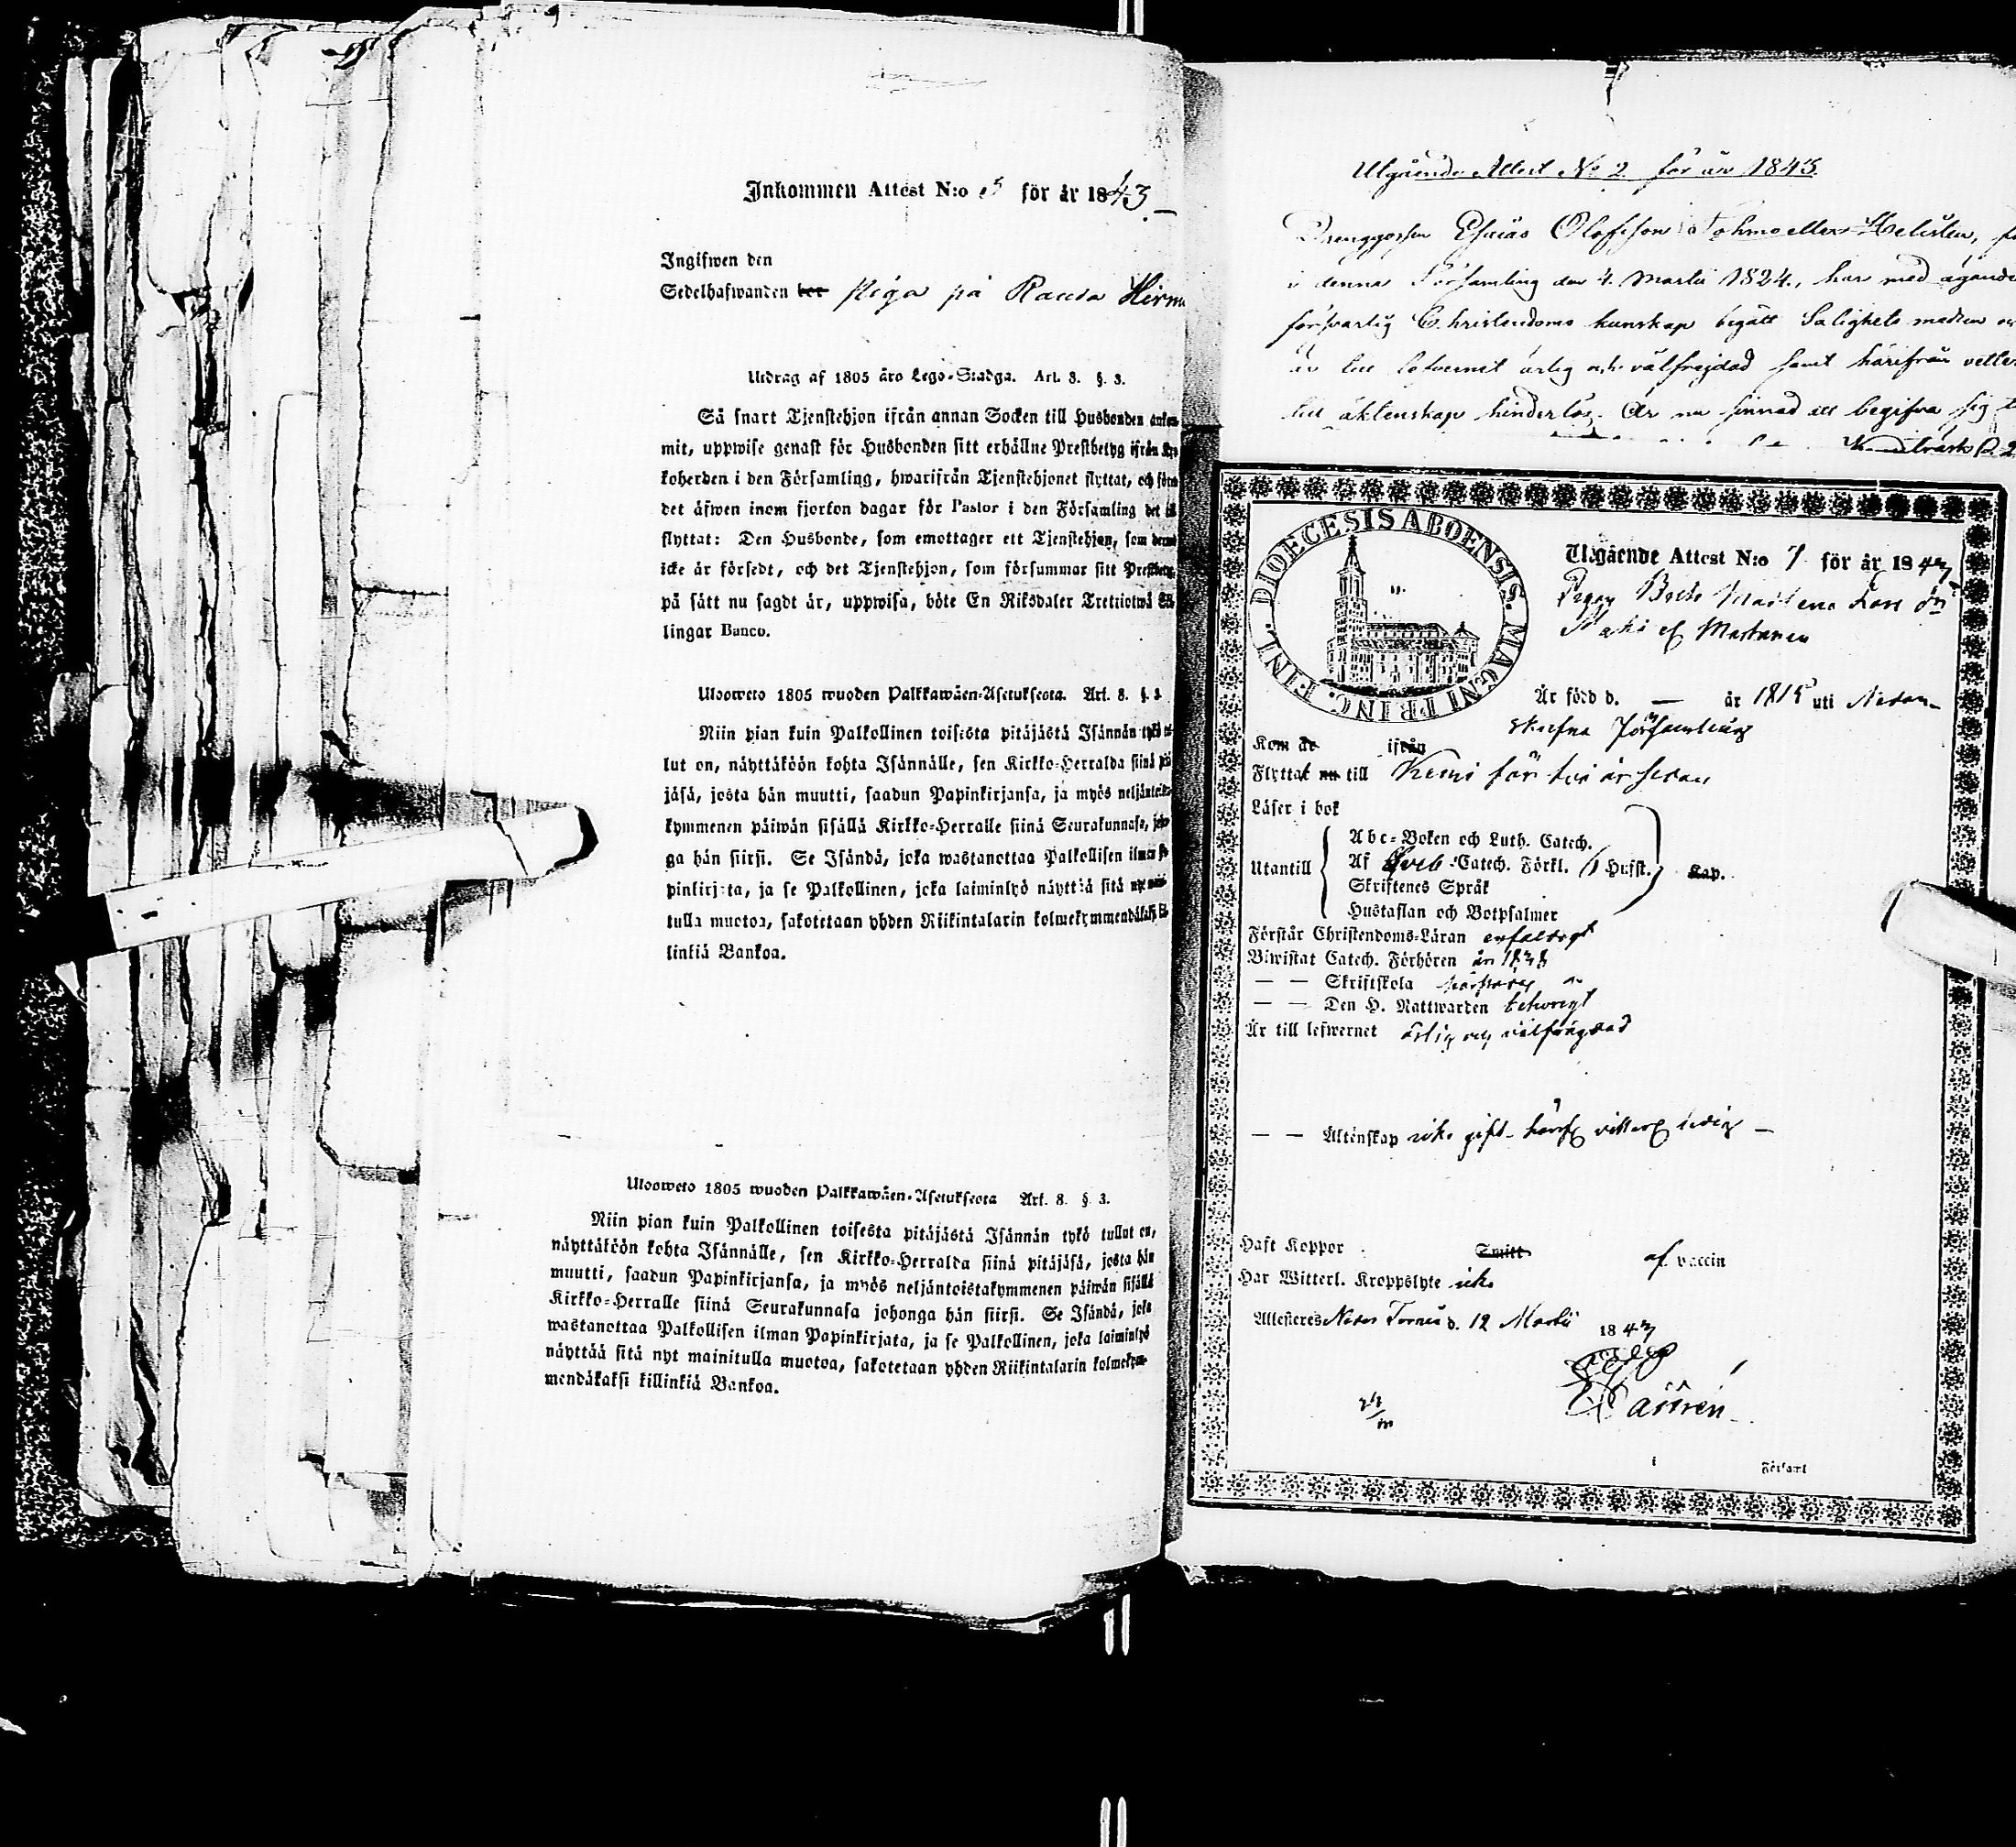 Inkommen Attest N:o 5 för år 1843
Ingifwen den
Sedelhafwanden bor Piga på Rauda
Utdrag af 1805 års Lego-Stadga. Art. 8. §. 3.
Så snart Tjenstehjon ifrån annan Socken till Husbonden
mit, uppwise genast för Husbonden sitt erhållne Prestbetyg ifrån
koherden i den Församling, hwarifrån Tjenstehjonet flyttat, och
det äfwen inom fjorton dagar för Pastor i den Församling det
flyttat: Den Husbonde, som emottager ett Tjenstehjon, som
icke är försedt, och det Tjenstehjon, som försummar sitt
på sätt nu sagdt är, uppwisa, böte En Riksdaler Tretiotwå
lingar Banco.
Ulosweto 1805 wuoden Palkkawäen-Asetuksesta. Art. 8. §. 3.
Niin pian kuin Palkollinen toisesta pitäjästä Isännän tykö
lut on, näyttäköön kohta Isännälle, sen Kirkko-Herralda siinä
jäsä, josta hän muutti, saadun Papinkirjansa, ja myös
kymmenen päiwän sisällä Kirkko-Herralle siinä Seurakunnasa,
ga hän siirsi. Se Isändä, joka wastanottaa Palkollisen ilman
pinkirjata, ja se Palkollinen, joka laiminlyö näyttää sitä
tulla muotoa, sakotetaan yhden Riikintalarin
linkiä Bankoa.
Ulosweto 1805 wuoden Palkkawäen-Asetuksesta Art. 8. §. 3.
Niin pian kuin Palkollinen toisesta pitäjästä Isännän tykö tullut on,
näyttäköön kohta Isännälle, sen Kirkko-Herralda siinä pitäjäsä, josta hän
muutti, saadun Papinkirjansa, ja myös neljäntoistakymmenen päiwän sisällä
Kirkko-Herralle siinä Seurakunnasa johonga hän siirsi. Se Isändä, joka
wastanottaa Palkollisen ilman Papinkirjata, ja se Palkollinen, joka laiminlyö
näyttää sitä nyt mainitulla muotoa, sakotetaan yhden Riikintalarin kolmekym-
mendäkaksi killinkiä Bankoa.
Utgående Attest No 2 för år 1843.
Drenggossen Esaias Olofsson Tohmo eller Helisten,
i denna Församling den 4. Martii 1824., har med ägande
försvarlig Christendoms kunskap begått Salighets medlen
är till lefvernet ärlig och välfrejdad samt härifrån
till äktenskap hinderlös. Är nu sinnad att begifva sig
DIOECESIS ABOENSIS. MAGNI PRINC. FINL.
Utgående Attest N:o 7 för år 1843
Pigan Brita
Är född d. — år 1815 uti Nedan-
skrefna Församling
Kom år ifrån
Flyttat nu till Kemi för två år sedan
Läser i bok
Utantill
Abc-Boken och Luth. Catech.
Af Sveb. Catech. Förkl. Hufst. Kap.
Skriftenes Språk
Hustaflan och Botpsalmer
Förstår Christendoms-Läran enfaldigt
Biwistat Catech. Förhören år 1838
— — Skriftskola
— — Den H. Nattwarden
Är till lefwernet ärlig och välfrägdad
— — Äktenskap icke gift
Haft Koppor Smitt af vaccin
Har Witterl. Kroppslyte icke
Attesteres Neder Torneå d. 12 Martii 1843
Castrén
Förkaml